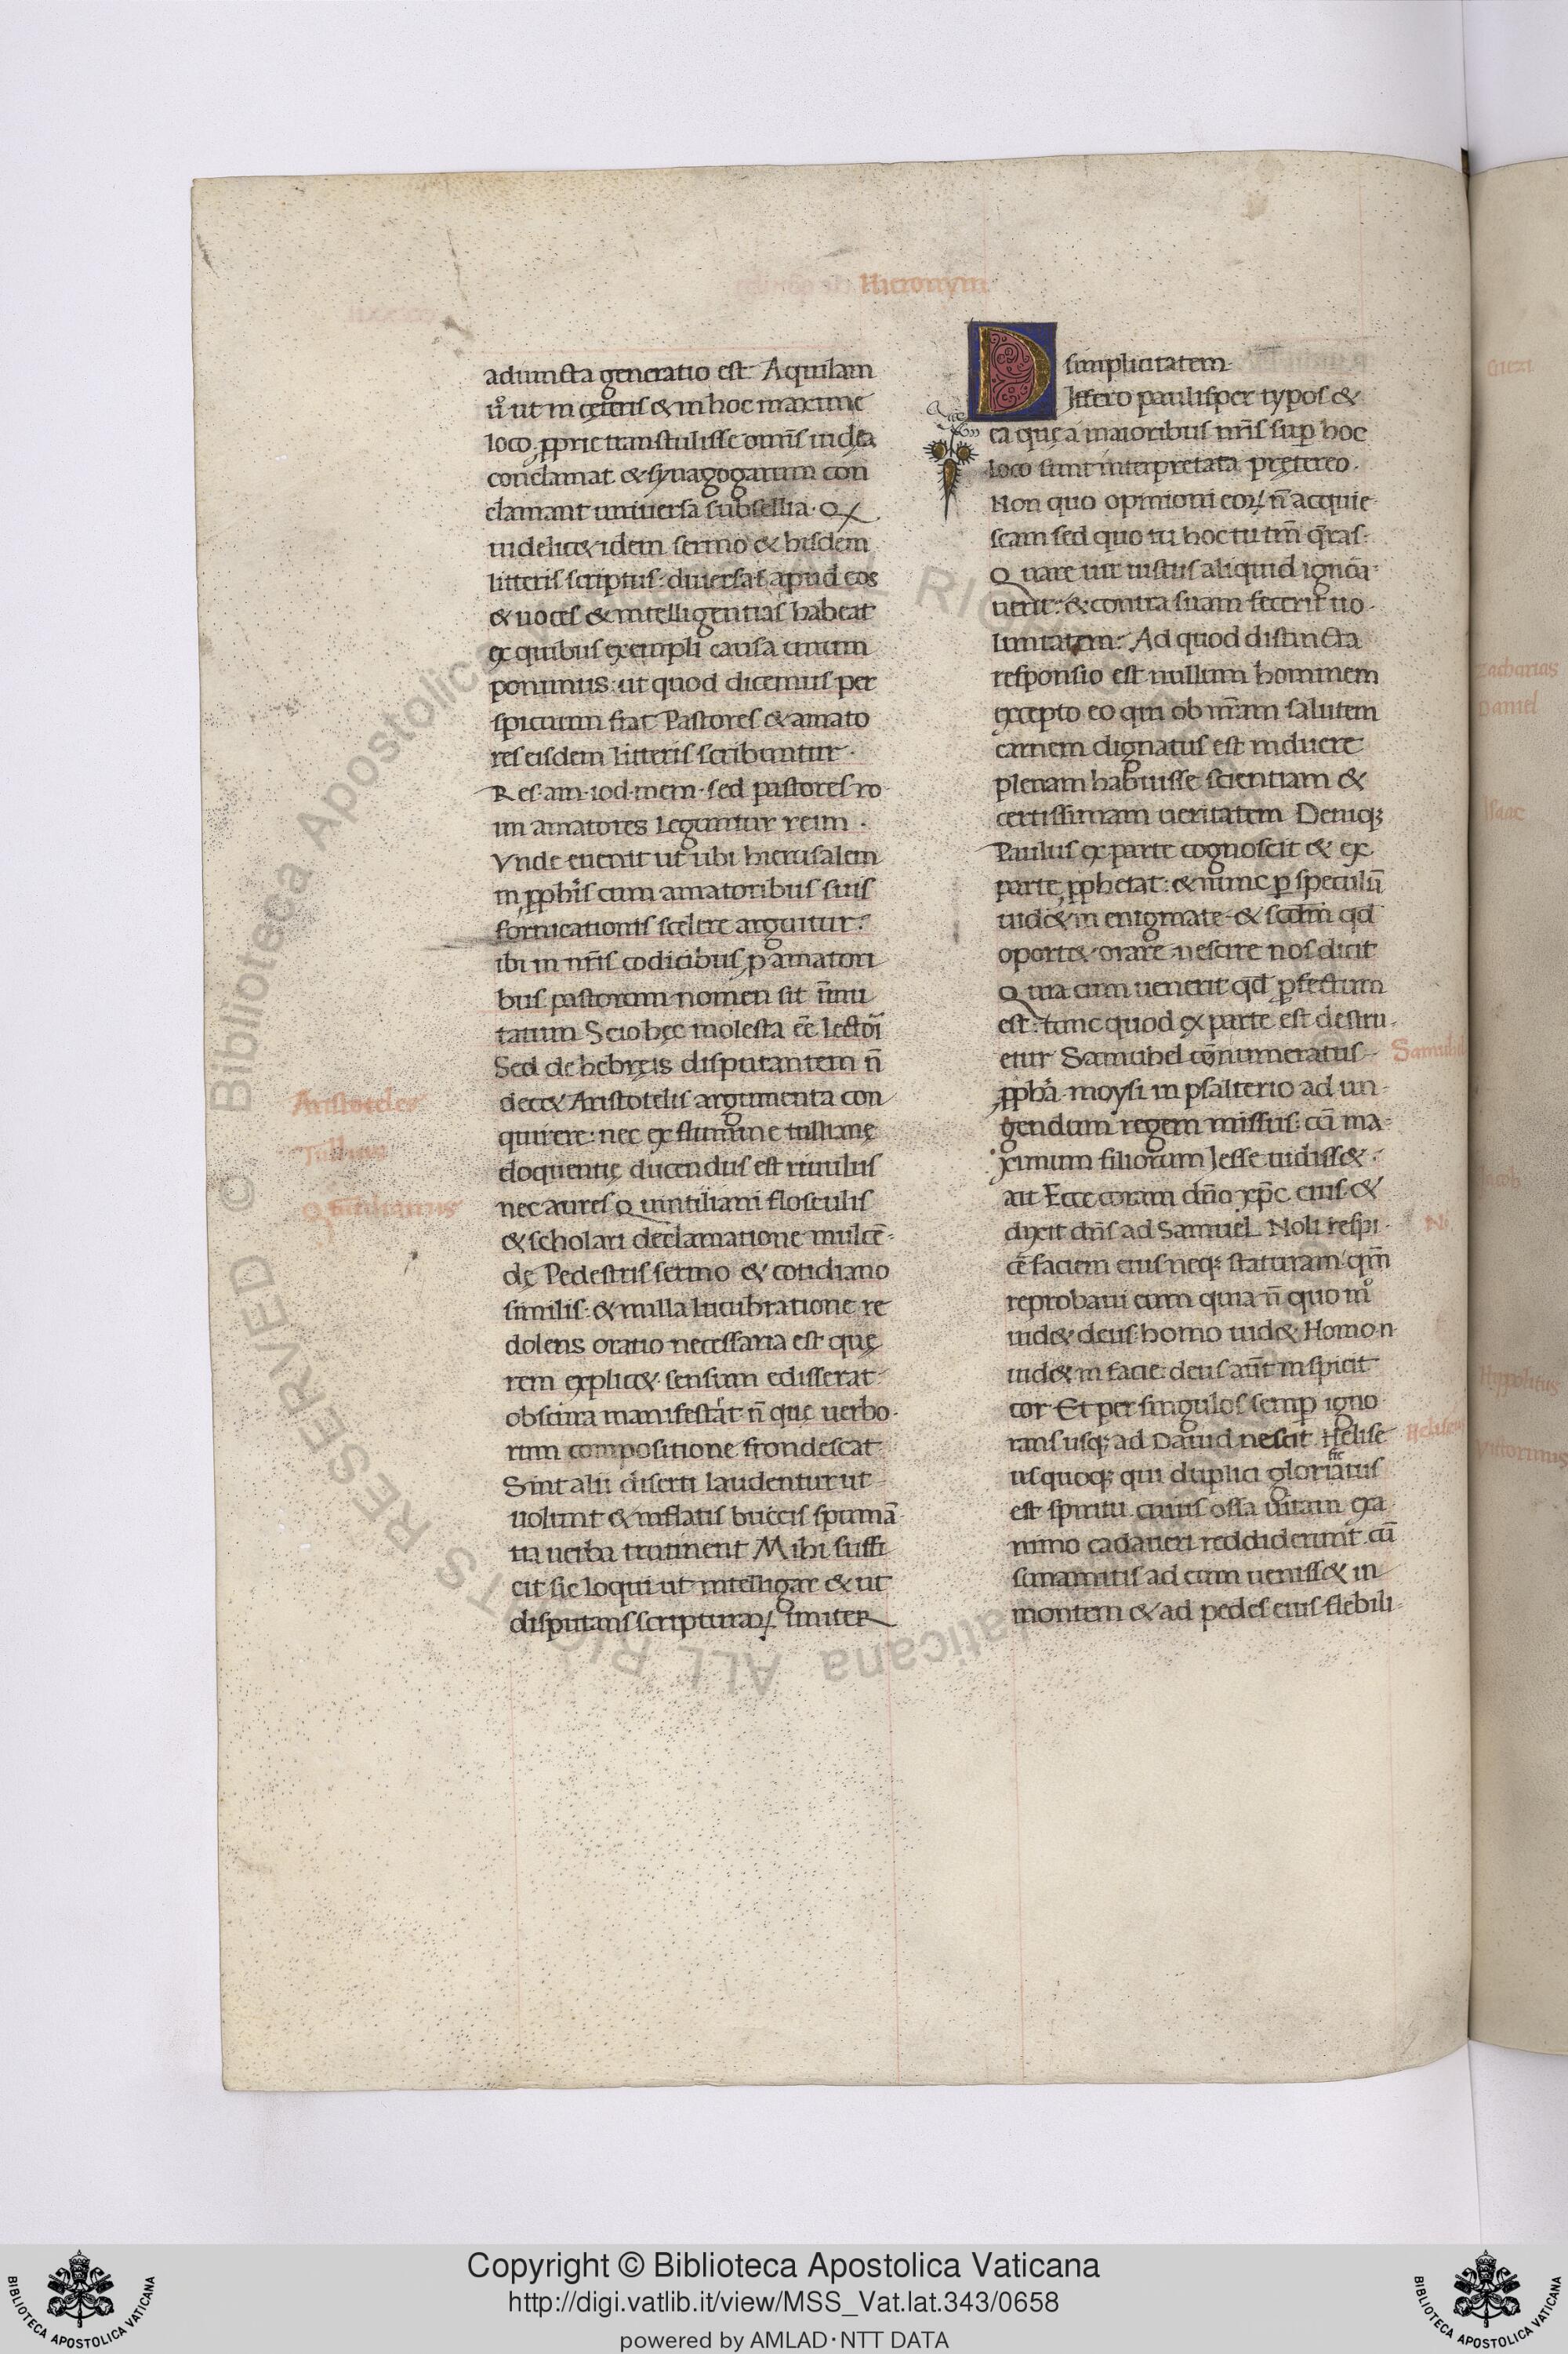 Hieronym
adiuncta generatio est Aquilam
u͛o ut in cęteris & in hoc maxime
loco ꝓprie transtulisse omīs iudęa
conclamat & synagogarum con
clamant uniuersa subsellia. Qx
uidelic& idem sermo & hisdem
litteris scriptus: diuersas apud eos
& uoces & intelligentias habeat
ex quibus exempli causa unum
ponimus: ut quod dicemus per
spicuum fiat Pastores & amato
res eisdem litteris scribuntur.
Res. ain. iod. mem. sed pastores ro
im amatores leguntur reim.
Vnde euenit ut ubi hierusalem
in ꝓphis cum amatoribus suis
fornicationis scelere arguitur:
ibi in nr̄is codicibus ꝓ amatori
bus pastorum nomen sit īmu
tatum Scio hęc molesta eē lectori
Sed de hebręis disputantem n̄
dec& Aristotelis argumenta con
quirere: nec ex flumine tullianę
eloquentię ducendus est riuulus
nec aures Quintiliani flosculis
& scholari declamatione mulcē-
dę Pedestris sermo & cotidiano
similis. & nulla lucubratione re
dolens oratio necessaria est quę
rem explic& sensum edisserat
obscura manifestat. n̄ quę uerbo-
rum compositione frondescat
Sint alii diserti laudentur ut
uolunt & inflatis buccis spumā
tia uerba trutinent Mihi suffi
cit sic loqui ut intelligar & ut
disputans scripturaꝝ imiter
Aristoteles
Tullius
Quintilianus
simplicitatem.
DIffero paulisper typos &
ea quę a maioribus nr̄is suꝑ hoc
loco sunt interpretata prętereo.
Non quo opinioni eoꝝ n̄ acquie-
scam sed quo tu hoc tu tm̄ q̄ras:
Quare uir iustus aliquid ignōa-
uerit: & contra suam fecerit uo-
luntatem: Ad quod distincta
responsio est nullum hominem
excepto eo qui ob nr̄am salutem
carnem dignatus est induere
plenam habuisse scientiam &
certissimam ueritatem Deniqꝫ
Paulus ex parte cognoscit & ex
parte ꝓphetat: & nunc ꝑ speculū
uid& in enigmate. & scd̄m qd
oport& orare nescire nos dicit
Quia cum uenerit qd̄ ꝑfectum
est: tunc quod ex parte est destru-
etur Samuhel cōnumeratus
ꝓpha. moysi in psalterio ad un-
gendum regem missus: cū ma-
ximum filiorum Iesse uidiss&.
ait Ecce coram dn̄o xp̄c eius &
dixit dn̄s ad Samuel Noli respi-
cē faciem eius neqꝫ staturam qm̄
reprobaui eum quia n̄ quo m͛o
uid& deus homo uid& Homo n
uid& in facie: deus aūt inspicit
cor Et per singulos semꝑ igno
rans usqꝫ ad Dauid nescit Helise
us quoqꝫ qui duplici gloriatus
est spiritu. cuius ossa uitam exa
nimo cadaueri reddiderunt. cū
sunamitis ad eum ueniss& in
montem & ad pedes eius flebili-
Samuhel
Helise
Giezi
Zacharias
Daniel
Isaac
Iacob
Hyppolitus
Victorinus
© Biblioteca Apostolica Vaticana ALL RIGHTS RESERVED
Copyright © Biblioteca Apostolica Vaticana
http://digi.vatlib.it/view/MSS_Vat.lat.343/0658
powered by AMLAD·NTT DATA
BIBLIOTECA APOSTOLICA VATICANA
BIBLIOTECA APOSTOLICA VATICANA